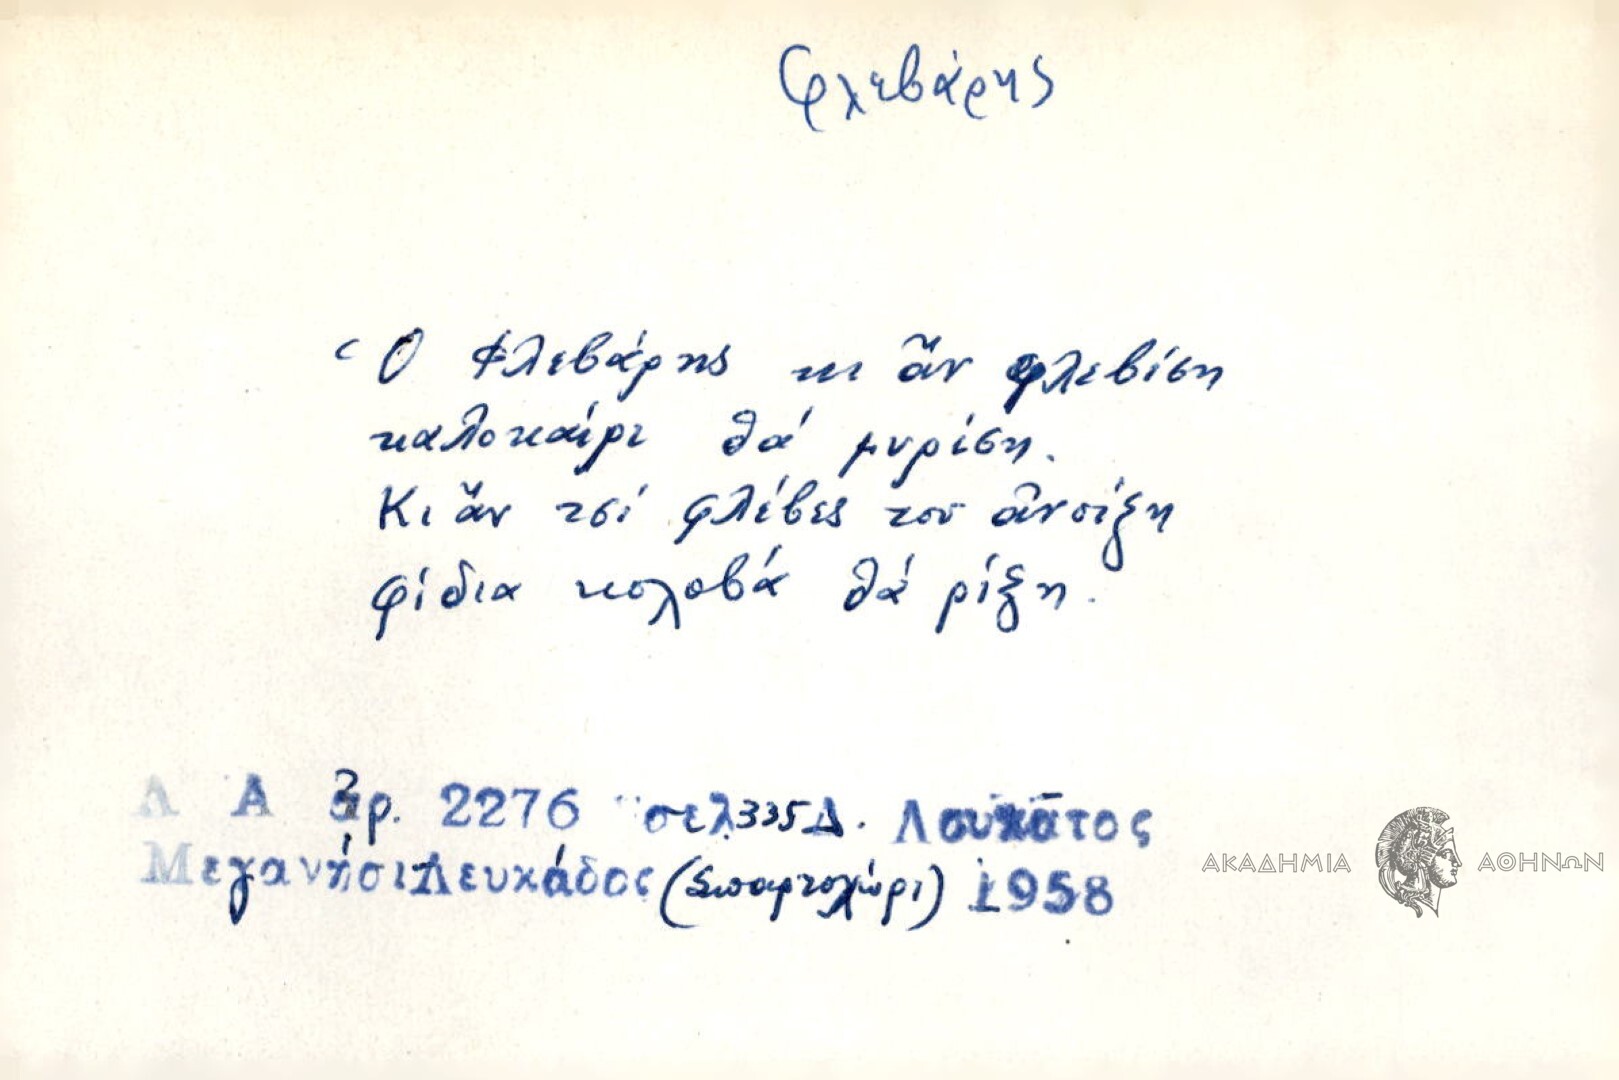 Φλεβάρης
Ὁ Φλεβάρης κι ἄν φλεβίση
καλοκαίρι θά μυρίση.
Κι ἄν τσί φλέβες του ἀνοίξη
φίδια κολοβά θά ρίξη.
Λ Α ἀρ. 2276 σελ 335 Δ. Λουκᾶτος
Μεγανήσι Λευκάδος (Σπαρτοχώρι) 1958
ΑΚΑΔΗΜΙΑ ΑΘΗΝΩΝ